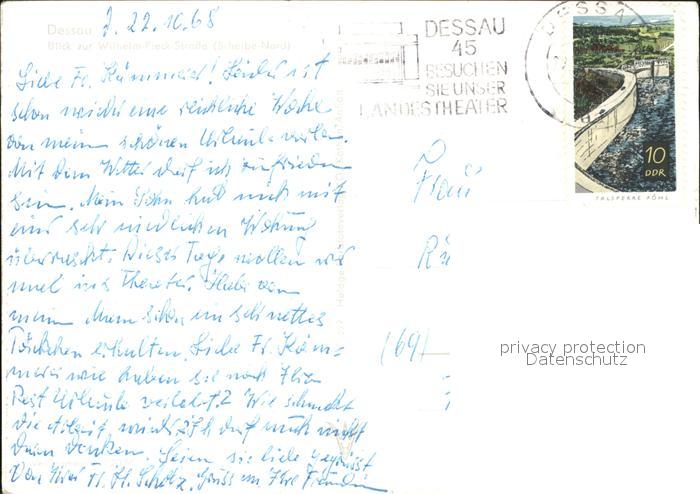 Dessau
Blick zur Wilhelm-Pieck-Straße (Scheibe-Nord)
D. 22.10.68
Liebe Fr. Kümmerei! Leider ist
schon wieder eine reichliche Woche
von mein schönen Urlaub verlau.
Mit dem Wetter darf ich zufrieden
sein. Mein Sohn hat mich mit
einer sehr niedlichen Wohnung
überrascht. Dieser Tage wollen wir
mal ins Theater. Habe von
mein schon ein sehr nettes
Täschchen erhalten. Liebe Fr. Küm=
merei wie haben Sie noch Ihren
Rest Urlaub verlebt? Wie schmeckt
die Arbeit wieder? Ich darf noch nicht
daran denken. Seien Sie lieb gegrüsst
von Ihrer Fr. H. Scholz. Gruss an Ihre Freundin
DESSAU
45
BESUCHEN
SIE UNSER
LANDESTHEATER
DESSA
10
DDR
TALSPERRE PÖHL
Frau
(69)
privacy protection
Datenschutz